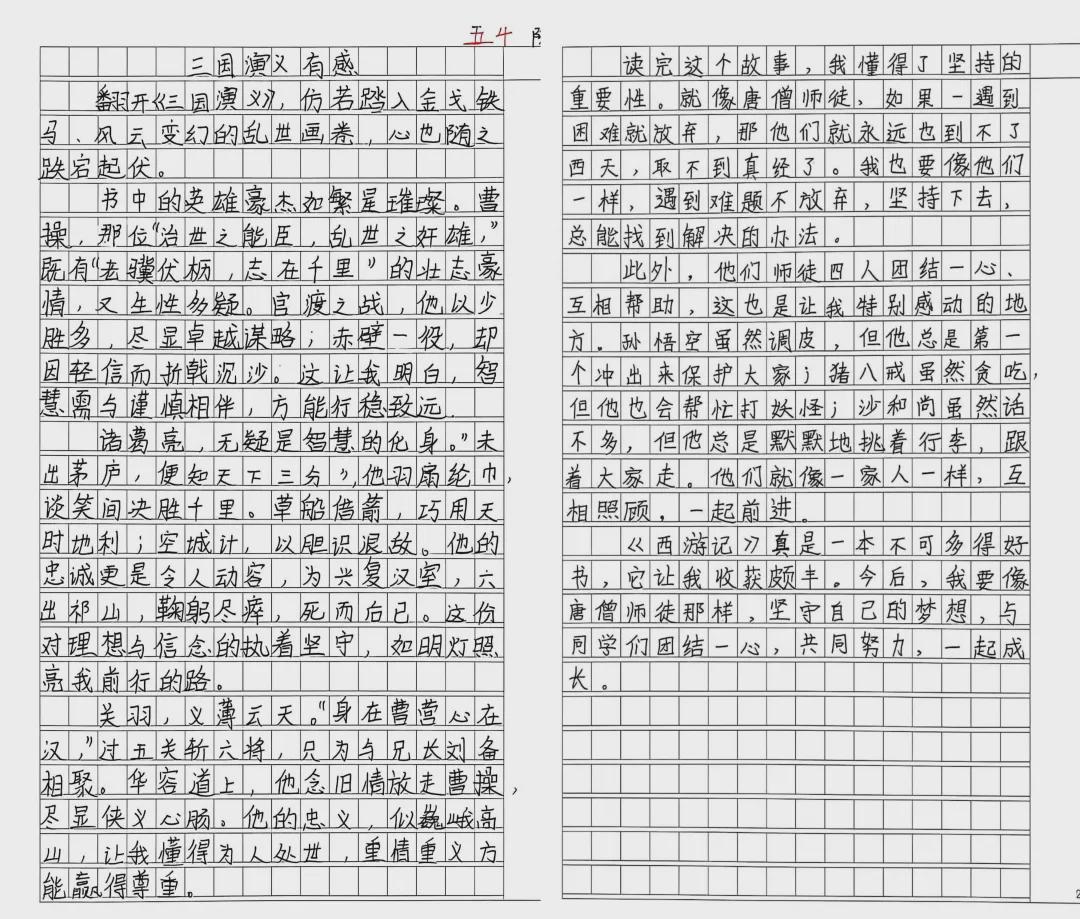 五4
三国演义有感
翻开《三国演义》，仿若踏入金戈铁
马、风云变幻的乱世画卷，心也随之
跌宕起伏。
书中的英雄豪杰如繁星璀璨。曹
操，那位“治世之能臣，乱世之奸雄，”
既有“老骥伏枥，志在千里”的壮志豪
情，又生性多疑。官渡之战，他以少
胜多，尽显卓越谋略；赤壁一役，却
因轻信而折戟沉沙。这让我明白，智
慧需与谨慎相伴，方能行稳致远.
诸葛亮，无疑是智慧的化身。”未
出茅庐，便知天下三分”，他羽扇纶巾，
谈笑间决胜千里。草船借箭，巧用天
时地利；空城计，以胆识退敌。他的
忠诚更是令人动容，为兴复汉室，六
出祁山，鞠躬尽瘁，死而后已。这份
对理想与信念的执着坚守，如明灯照
亮我前行的路。
关羽，义薄云天。“身在曹营心在
汉，”过五关斩六将，只为与兄长刘备
相聚。华容道上，他念旧情放走曹操，
尽显侠义心肠。他的忠义，似巍峨高
山，让我懂得为人处世，重情重义方
能赢得尊重。
读完这个故事，我懂得了坚持的
重要性。就像唐僧师徒、如果一遇到
困难就放弃，那他们就永远也到不了
西天，取不到真经了。我也要像他们
一样，遇到难题不放弃，坚持下去，
总能找到解决的办法。
此外，他们师徒四人团结一心、
互相帮助，这也是让我特别感动的地
方．孙悟空虽然调皮，但他总是第一
个冲出来保护大家；猪八戒虽然贪吃，
但他也会帮忙打妖怪；沙和尚虽然话
不多，但他总是默默地挑着行李，跟
着大家走。他们就像一家人一样，互
相照顾，一起前进。
《西游记》真是一本不可多得好
书，它让我收获颇丰。今后，我要像
唐僧师徒那样，坚守自己的梦想，与
同学们团结一心，共同努力，一起成
长。